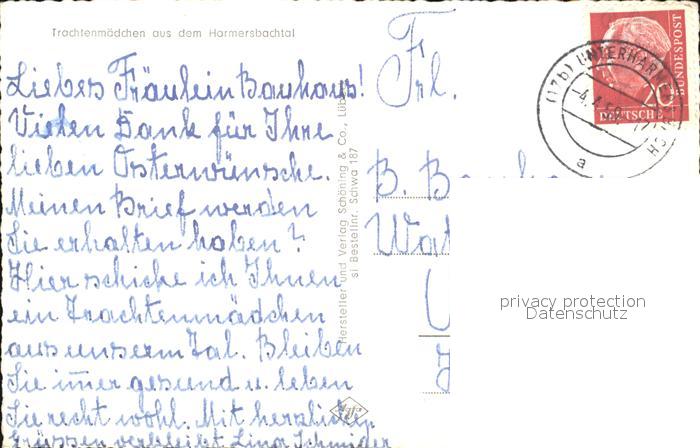 Trachtenmädchen aus dem Harmersbachtal
Liebes Fräulein Bauhaus!
Vielen Dank für Ihre
lieben Osterwünsche.
Meinen Brief werden
Sie erhalten haben?
Hier schicke ich Ihnen
ein Trachtenmädchen
aus unserm Tal. Bleiben
Sie immer gesund u. leben
Sie recht wohl. Mit herzlichen
Grüssen verbleibt Lina Schmider
Hersteller und Verlag Schöning & Co., Lüb
si Bestellnr. Schwa 187
Agfa
Frl.
B. Bauhaus
Wat
(17b) UNTERHARMERSBACH
a
20
DEUTSCHE
BUNDESPOST
privacy protection
Datenschutz